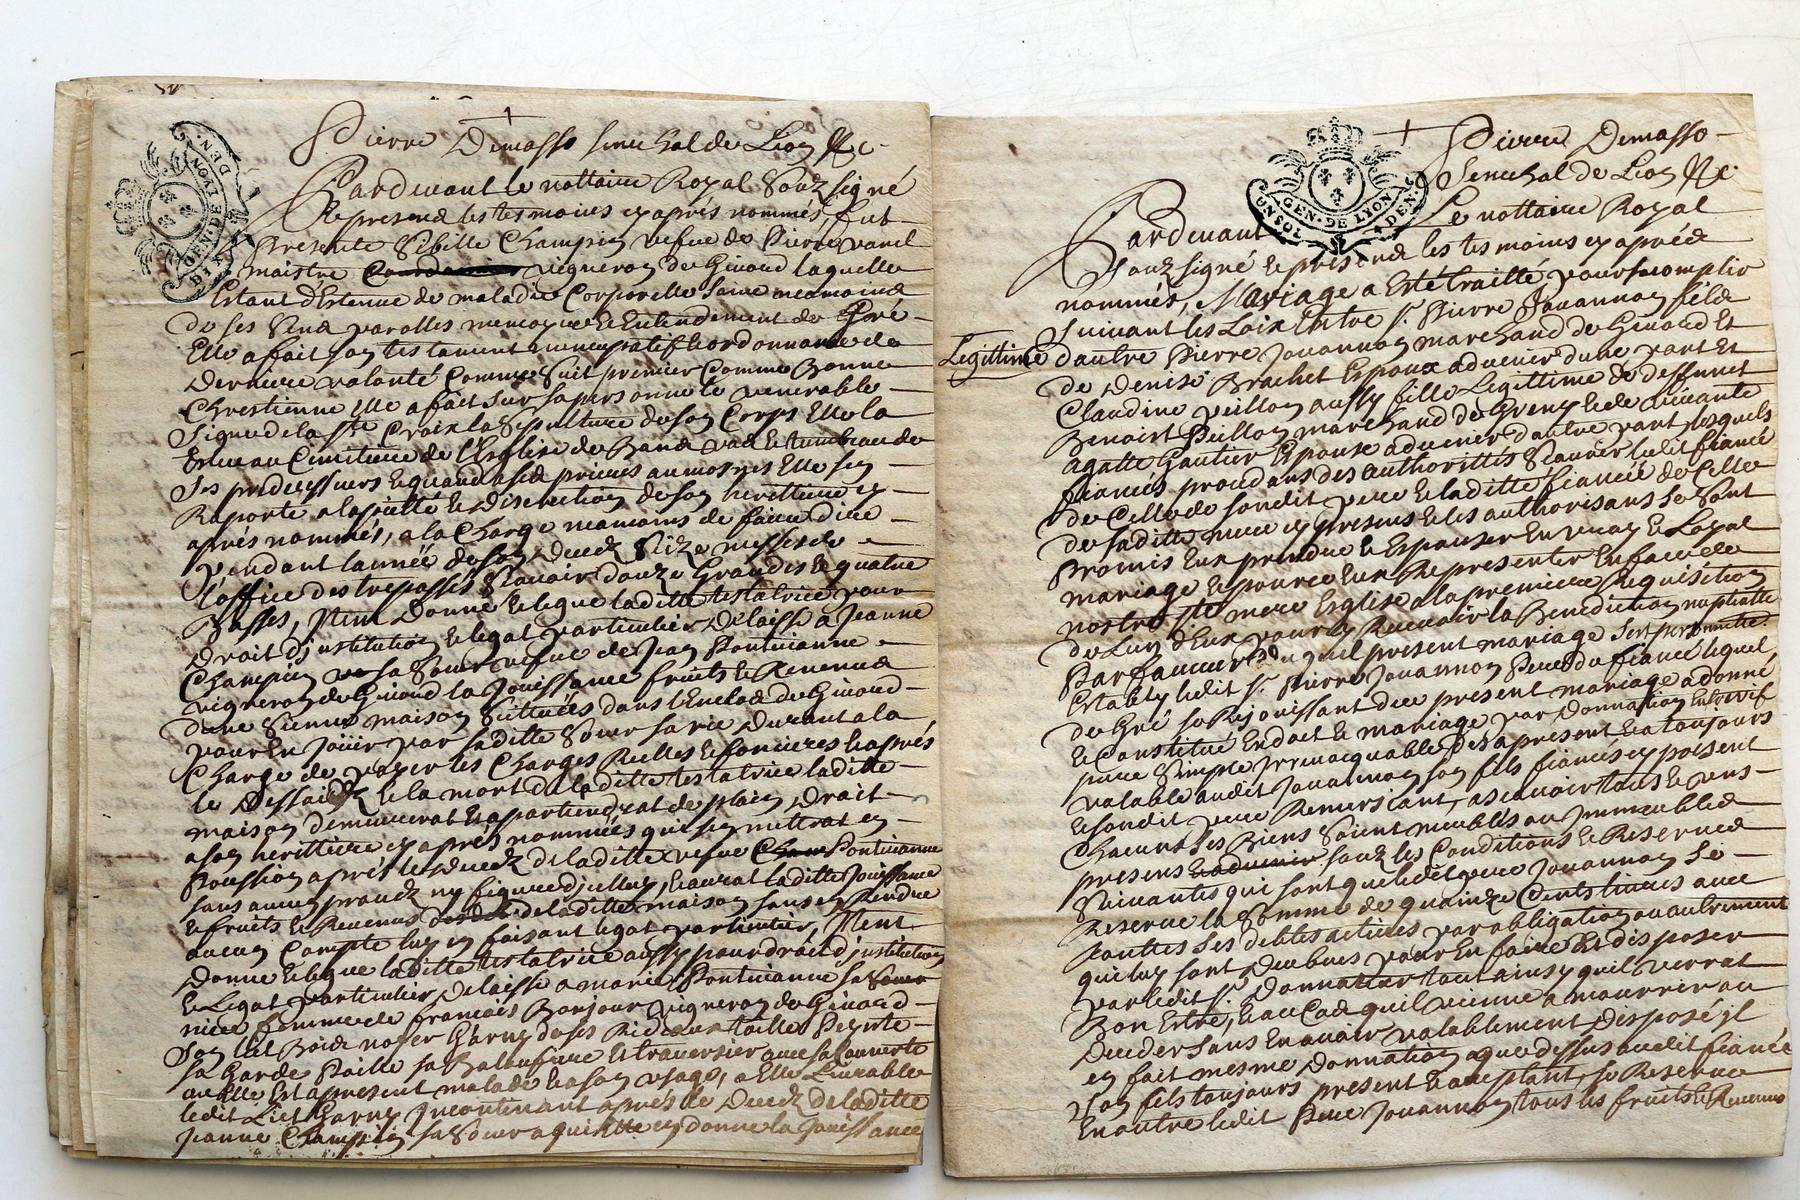 Pierre Demasso senechal de Lion &c.
Pardevant le nottaire Royal Souz signé
& presens les tesmoins cy après nommés, fut
Presente Sibille Champin vefve de Pierre varel
maistre vigneron de Givord laquelle
Estant d'Estenue de maladie Corporelle saine neamoins
de ses sens parolles memoyre & Entendement de Gré
Elle a fait son testament nuncupatif & ordonnance de
derniere volonté Comme Suit premier Comme Bonne
Chrestienne Elle a fait sur sa personne le venerable
Signe de la Ste Croix la Sepulture de son Corps Elle la
Esleue au Cimitiere de l'Esglise de Bans vas & tumbeau de
Ses predecesseurs & quand a ses prieres aumosnes Elle sen
Raporte a la pietté & discretion de son herittiere cy
après nommés, a la Charge neamoins de faire dire
pendant lannée de son deceds Seize messes de
l'office des trespassés Scavoir douze Grandes & quatre
Basses, Item donne & legue laditte testatrice pour
Droit d'jnstitution & legat particulier delaisse a Jeanne
Champin sa Soeur vefve de Jean Pontvianne
vigneron de Givord la Jouissance fruits & Revenus
dune Sienne maison Scittuées dans l'Enclos de Givord
pour En Jouir par saditte Soeur sa vie durant a la
Charge de payer les Charges Reelles & foncieres & après
le & la mort de laditte testatrice laditte
maison demeurerat & apartiendrat de plain droit
a son herittiere cy après nommées qui sen mettrat en
Possession après le deceds de laditte vefve Pontvianne
sans aucun procedz ny figure d'jcelluy, & aurat laditte Jouissance
& fruits & Revenus de laditte maison sans en Rendre
aucun Compte luy en faisant legat particulier, Item
Donne & legue laditte testatrice aussy pour droit d'jnstitution
& Legat particulier delaisse a marie Pontvianne sa
niece femme de francois Bonjour vigneron de Givord
Son Lict Bois noyer Garny de ses Rideaux toille Peynte
sa Garde Paille sa Balouffiere & traversier avec sa Couverte
ou Elle Est a present malade & a son usage, a Elle Livrable
ledit Lict Garny Jncontinant après le deceds de laditte
Jeanne Champin sa Soeur a qui Elle en donne la Jouissance
DIX DEN.
GEN. DE LYON
Pierre Demasso
Senechal de Lion &c
UN SOL 4 DEN.
GEN. DE LYON
Pardevant Le nottaire Royal
Souz signé & presens les tesmoins cy après
nommés, Mariage a Esté traitté pour saccomplir
Suivant les Loix Entre Sr. Pierre Jouannon fils
Legittime dautre Pierre Jouannon marchand de Givord Et
de Denise Brachet Epoux advenir dune part Et
Claudine Peillon aussy fille Legittime de deffunct
Benoist Peillon marchand de & de vivante
agatte Gautier Epouse advenir dautre part lesquels
fiancés procedans des authorittés Scavoir ledit fiancé
de Celle de sondit pere & laditte fiancée de Celle
de saditte mere cy presens & les authorisans Se Sont
Promis Eux prendre & Espouser En vray & Loyal
mariage & pource Eux Representer En face de
nostre Ste mere Esglise a la premiere Requisition
de Lun d'Eux pour y Recevoir la Benediction nuptialle
Par faveur du quel present mariage sest personnelle.
Estably ledit Sr. Pierre Jouannon Pere du fiancé lequel
de Gré se Rejouissant du present mariage a donné
& Constitué En dot & mariage par donnation Entre vif
pure Simple Jrrevocquable des apresent & a tousjours
valable audit Jouannon son fils fiancé cy present
& sondit pere Remersiant, ascavoir tous & uns
Chacuns ses Biens Soient meubles ou Jmmeubles
presens souz les Conditions & Reserves
Suivantes qui sont que ledit pere Jouannon Se
Reserve la Somme de quainze Cents livres avec
touttes ses debtes actives par obligation ou autrement
qui luy sont deubües pour En faire Et disposer
par ledit Sr. Donnateur tout ainsy quil verrat
Bon Estre, & au Cas quil vienne a mourrir ou
Deceder sans En avoir valablement disposé jl
en fait mesme donnation que dessus audit fiancé
son fils tousjours present & acceptant, se Reserve
En outre ledit Pere Jouannon tous les fruits & Revenus